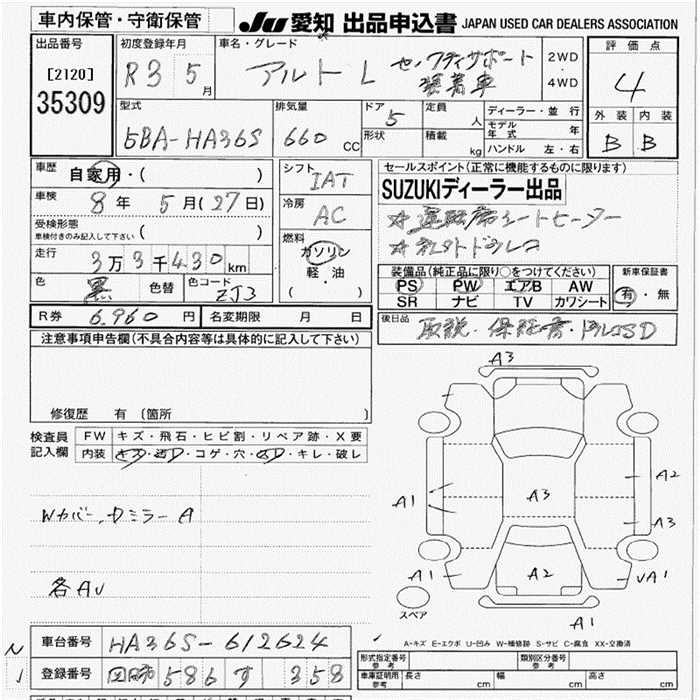 車内保管・守衛保管
JU 愛知 出品申込書 JAPAN USED CAR DEALERS ASSOCIATION
出品番号
[2120]
35309
初度登録年月
R3 5月
車名・グレード
アルト L セーフティサポート
装着車
2WD
・
4WD
評価点
4
外装 内装
B B
型式
5BA-HA36S
排気量
660 CC
ドア 5
形状
定員 人
積載 kg
ディーラー・並行
モデル
年式 年
ハンドル 左・右
車歴
自家用・( )
車検
8年 5月(27日)
受検形態
車検付きのみ記入して下さい ( )
走行
3万3千430km
色 黒 色替 色コード ZJ3
シフト
IAT
冷房
AC
燃料
ガソリン
軽・油
( )
セールスポイント(正常に機能するものに限ります)
SUZUKIディーラー出品
☆運転席シートヒーター
装備品(純正品に限り○をつけてください)
PS PW エアB AW
SR ナビ TV カワシート
新車保証書
有・無
R券 6,960 円 名変期限 月 日
後日品
取説・保証書・
注意事項申告欄(不具合内容等は具体的に記入して下さい)
修復歴 有 (箇所 )
検査員
記入欄
FW キズ・飛石・ヒビ割・リペア跡・X要
内装 キズ・汚レ・コゲ・穴・・キレ・破レ
Wカバー、ドミラーA
各AU
A3
A1
A3
A2
A3
A1
A2
UA1
A1
スペア
A-キズ E-エクボ U-凹み W-補修跡 S-サビ C-腐食 XX-交換済
車台番号 HA36S-612624
登録番号 586 す 358
形式指定番号
参考
類別区分番号
参考
車庫証明用
参考
長さ cm 幅 cm 高さ cm